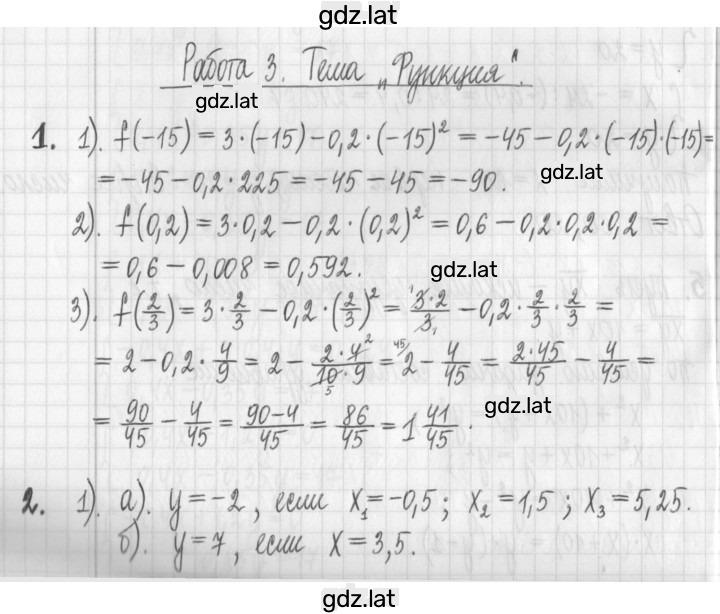 gdz.lat
Работа 3. Тема „Функция".
gdz.lat
1. 1). f(−15) = 3·(−15) − 0,2·(−15)² = −45 − 0,2·(−15)·(−15) =
= −45 − 0,2·225 = −45 − 45 = −90.
gdz.lat
2). f(0,2) = 3·0,2 − 0,2·(0,2)² = 0,6 − 0,2·0,2·0,2 =
= 0,6 − 0,008 = 0,592.
gdz.lat
3). f(2/3) = 3·2/3 − 0,2·(2/3)² = 3·2/3 − 0,2·2/3·2/3 =
= 2 − 0,2·4/9 = 2 − 2·4/10·9 = 2 − 4/45 = 2·45/45 − 4/45 =
= 90/45 − 4/45 = 90−4/45 = 86/45 = 1 41/45.
gdz.lat
2. 1). а). y = −2, если x₁ = −0,5; x₂ = 1,5; x₃ = 5,25.
б). y = 7, если x = 3,5.
gdz.lat